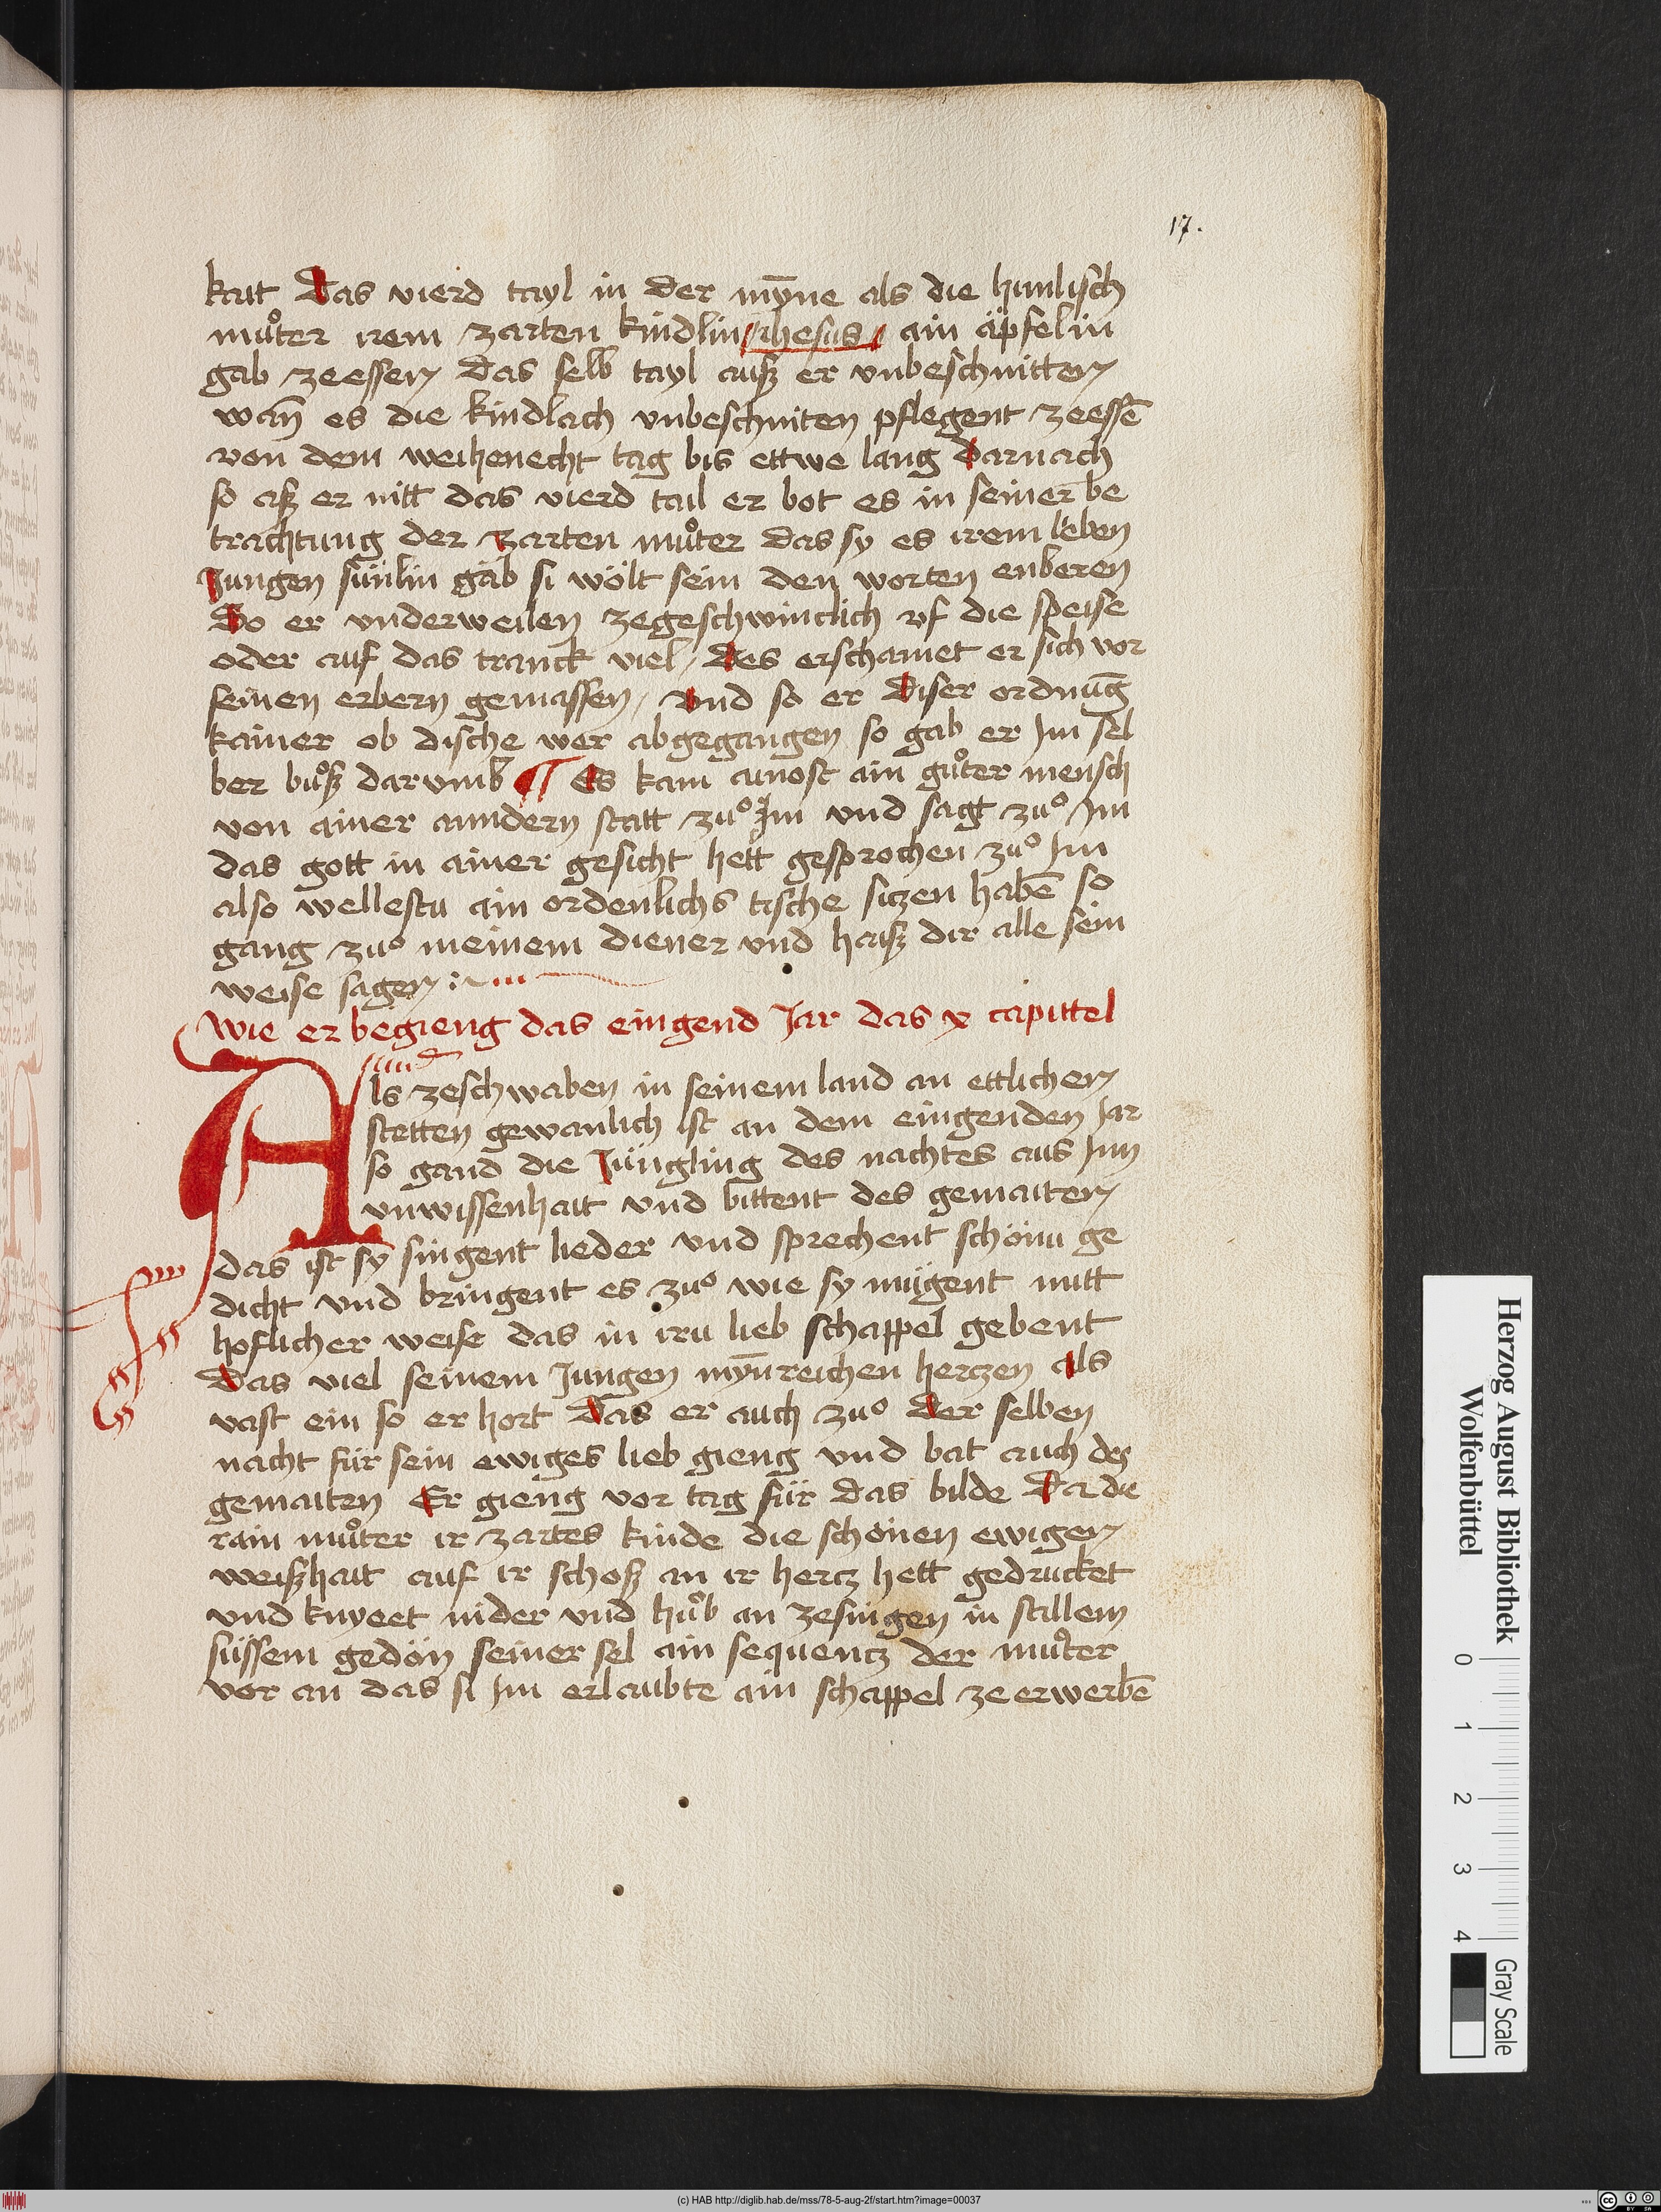 17.
kait Das vierd tayl in der mȳne als die himlisch
muͦter irem zarten kindlin ihesus ain äpfelin
gab zeessen Das selb tayl ausz er vnbeschnitten
wan̄ es die kindlach vnbeschniten pflegent zeessē
von dem weihenecht tag bis ettwe lang darnach
so asz er nitt das vierd tail er bot es in seiner be
trachtung der zarten muͦter das sy es irem lieben
Jungen sünlin gäb si wölt sein den worten enberen
Do er vnderweilen zegeschwintlich vf die speise
oder auf das tranck viel / des erschamet er sich vor
seinen erbern gemassen / vnd so er diser ordnūg
kainer ob dische wer abgegangen so gab er Im sel
ber buͦsz darvmb ¶ Es kam ainost ain guͦter mensch
von ainer anndern statt zuͦ Im vnd sagt zuͦ Im
das gott in ainer gesicht hett gesprochen zuͦ Im
also wellestu ain ordenlichs tische siczen habē so
gang zuͦ meinem diener vnd haisz dir alle sein
weise sagen
Wie er begieng das eingend Jar das x capittel
Als zeschwaben in seinem land an ettlichen
stetten gewanlich ist an dem eingenden Jar
so gand die Jüngling des nachtes aus Inn
vnwissenhait vnd bittent des gemaiten
das ist sy singent lieder vnd sprechent schönu ge
dicht vnd bringent es zuͦ wie sy mügent mitt
hoflicher weise das in iru lieb schappel gebent
Das viel seinem Jungen mȳnreichen herczen als
vast ein so er hort Das er auch zuͦ der selben
nacht für sein ewiges lieb gieng vnd bat auch des
gemaiten Er gieng vor tag für das bilde Da die
rain muͦter ir zartes kinde die schönen ewigen
weiszhait auf ir schosz an ir hercz hett gedrucket
vnd knyeet nider vnd huͦb an zesingen in stillem
süssem gedön seiner sel ain sequencz der muͦter
vor an das si Im erlaubte ain schappel ze erwerbē
Herzog August Bibliothek
Wolfenbüttel
0 1 2 3 4
Gray Scale
(c) HAB http://diglib.hab.de/mss/78-5-aug-2f/start.htm?image=00037